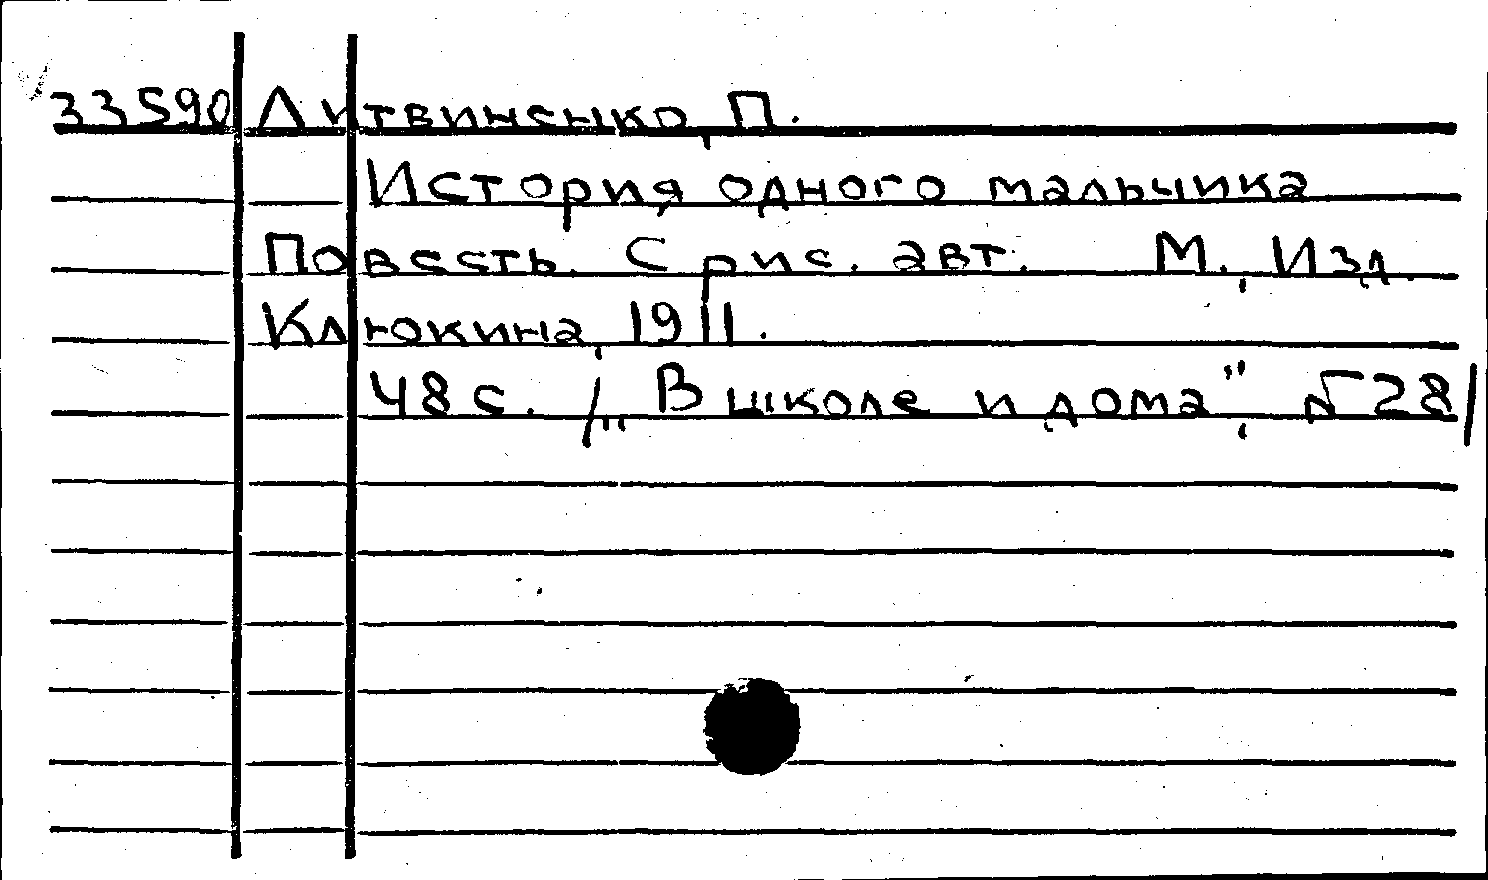 33590 Литвиненко, П.
История одного мальчика
Повесть. С рис. авт. М., Изд.
Клюкина, 1911.
48 с. /„В школе и дома", №28/